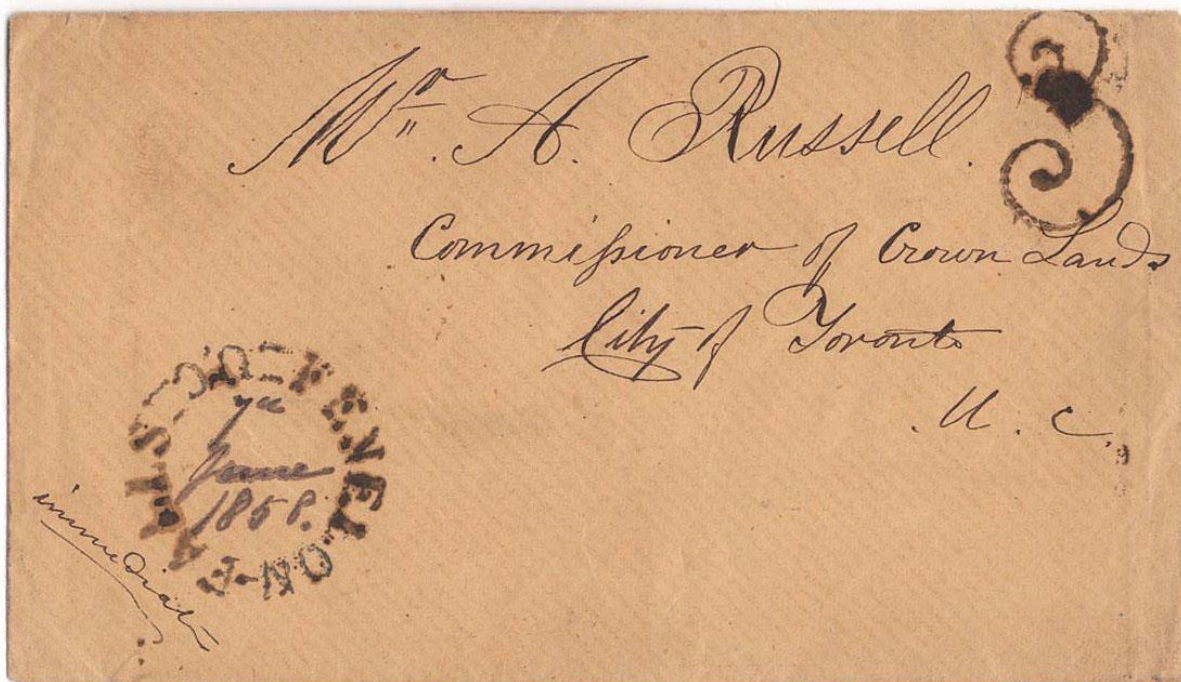 Mr. A. Russell.
Commissioner of Crown Lands
City of Toronto
U. C.
FENELON-FALLS-CO-
7th
June
1858.
immediate
3